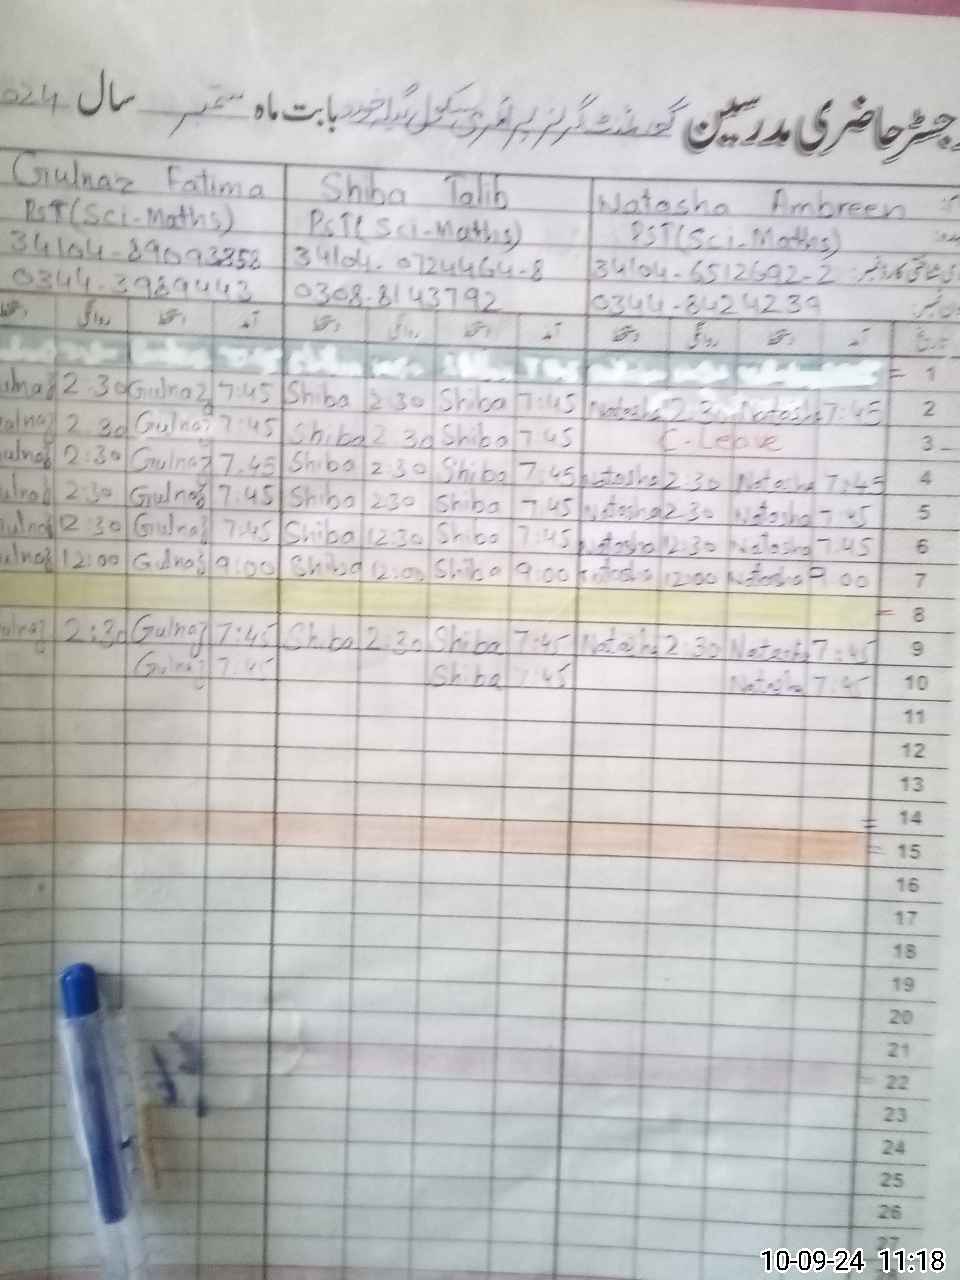 رجسٹر حاضری مدرسین گورنمنٹ گرلز پرائمری سکول خورد بابت ماہ ستمبر سال 2024
Gulnaz Fatima Shiba Talib Natasha Ambreen
PST(Sci-Maths) PST(Sci-Maths) PST(Sci-Maths)
34104-0724464-8 34104-6512692-2
0344-3989443 0308-8143792 0344-8424239
آمد روانگی
= 1
2:30 Gulnaz 7:45 Shiba 2:30 Shiba 7:45 Natasha 2:30 Natasha 7:45 2
2:30 Gulnaz 7:45 Shiba 2:30 Shiba 7:45 C-Leave 3
2:30 Gulnaz 7:45 Shiba 2:30 Shiba 7:45 Natasha 2:30 Natasha 7:45 4
2:30 Gulnaz 7:45 Shiba 2:30 Shiba 7:45 Natasha 2:30 Natasha 7:45 5
12:30 Gulnaz 7:45 Shiba 12:30 Shiba 7:45 Natasha 12:30 Natasha 7:45 6
12:00 Gulnaz 9:00 Shiba 12:00 Shiba 9:00 Natasha 12:00 Natasha 9:00 7
8
2:30 Gulnaz 7:45 Shiba 2:30 Shiba 7:45 Natasha 2:30 Natasha 7:45 9
Gulnaz 7:45 Shiba 7:45 Natasha 7:45 10
11
12
13
14
15
16
17
18
19
20
21
22
23
24
25
26
27
10-09-24 11:18